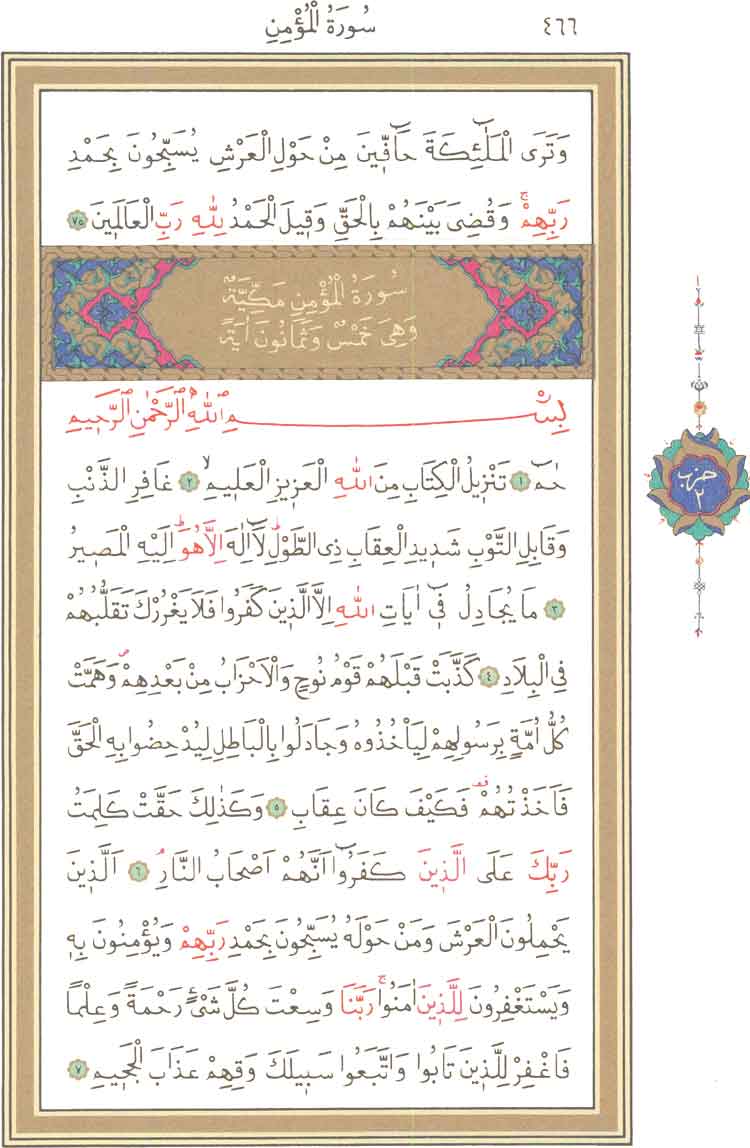 ٤٦٦
سُورَةُ الْمُؤْمِنِ
وَتَرَى الْمَلٰٓئِكَةَ حَٓافّ۪ينَ مِنْ حَوْلِ الْعَرْشِ يُسَبِّحُونَ بِحَمْدِ
رَبِّهِمْۚ وَقُضِيَ بَيْنَهُمْ بِالْحَقِّ وَق۪يلَ الْحَمْدُ لِلّٰهِ رَبِّ الْعَالَم۪ينَ ﴿٧٥﴾
سُورَةُ الْمُؤْمِنِ مَكِّيَّةٌ
وَهِيَ خَمْسٌ وَثَمَانُونَ اٰيَةً
بِسْمِ اللّٰهِ الرَّحْمٰنِ الرَّح۪يمِ
حٰمٓ ﴿١﴾ تَنْز۪يلُ الْكِتَابِ مِنَ اللّٰهِ الْعَز۪يزِ الْعَل۪يمِۙ ﴿٢﴾ غَافِرِ الذَّنْبِ
وَقَابِلِ التَّوْبِ شَد۪يدِ الْعِقَابِ ذِي الطَّوْلِۜ لَٓا اِلٰهَ اِلَّا هُوَۜ اِلَيْهِ الْمَص۪يرُ
﴿٣﴾ مَا يُجَادِلُ ف۪ٓي اٰيَاتِ اللّٰهِ اِلَّا الَّذ۪ينَ كَفَرُوا فَلَا يَغْرُرْكَ تَقَلُّبُهُمْ
فِي الْبِلَادِ ﴿٤﴾ كَذَّبَتْ قَبْلَهُمْ قَوْمُ نُوحٍ وَالْاَحْزَابُ مِنْ بَعْدِهِمْۖ وَهَمَّتْ
كُلُّ اُمَّةٍ بِرَسُولِهِمْ لِيَأْخُذُوهُ وَجَادَلُوا بِالْبَاطِلِ لِيُدْحِضُوا بِهِ الْحَقَّ
فَاَخَذْتُهُمْ۠ فَكَيْفَ كَانَ عِقَابِ ﴿٥﴾ وَكَذٰلِكَ حَقَّتْ كَلِمَتُ
رَبِّكَ عَلَى الَّذ۪ينَ كَفَرُٓوا اَنَّهُمْ اَصْحَابُ النَّارِۢ ﴿٦﴾ اَلَّذ۪ينَ
يَحْمِلُونَ الْعَرْشَ وَمَنْ حَوْلَهُ يُسَبِّحُونَ بِحَمْدِ رَبِّهِمْ وَيُؤْمِنُونَ بِه۪
وَيَسْتَغْفِرُونَ لِلَّذ۪ينَ اٰمَنُواۚ رَبَّنَا وَسِعْتَ كُلَّ شَيْءٍ رَحْمَةً وَعِلْمًا
فَاغْفِرْ لِلَّذ۪ينَ تَابُوا وَاتَّبَعُوا سَب۪يلَكَ وَقِهِمْ عَذَابَ الْجَح۪يمِ ﴿٧﴾
حزب
٢